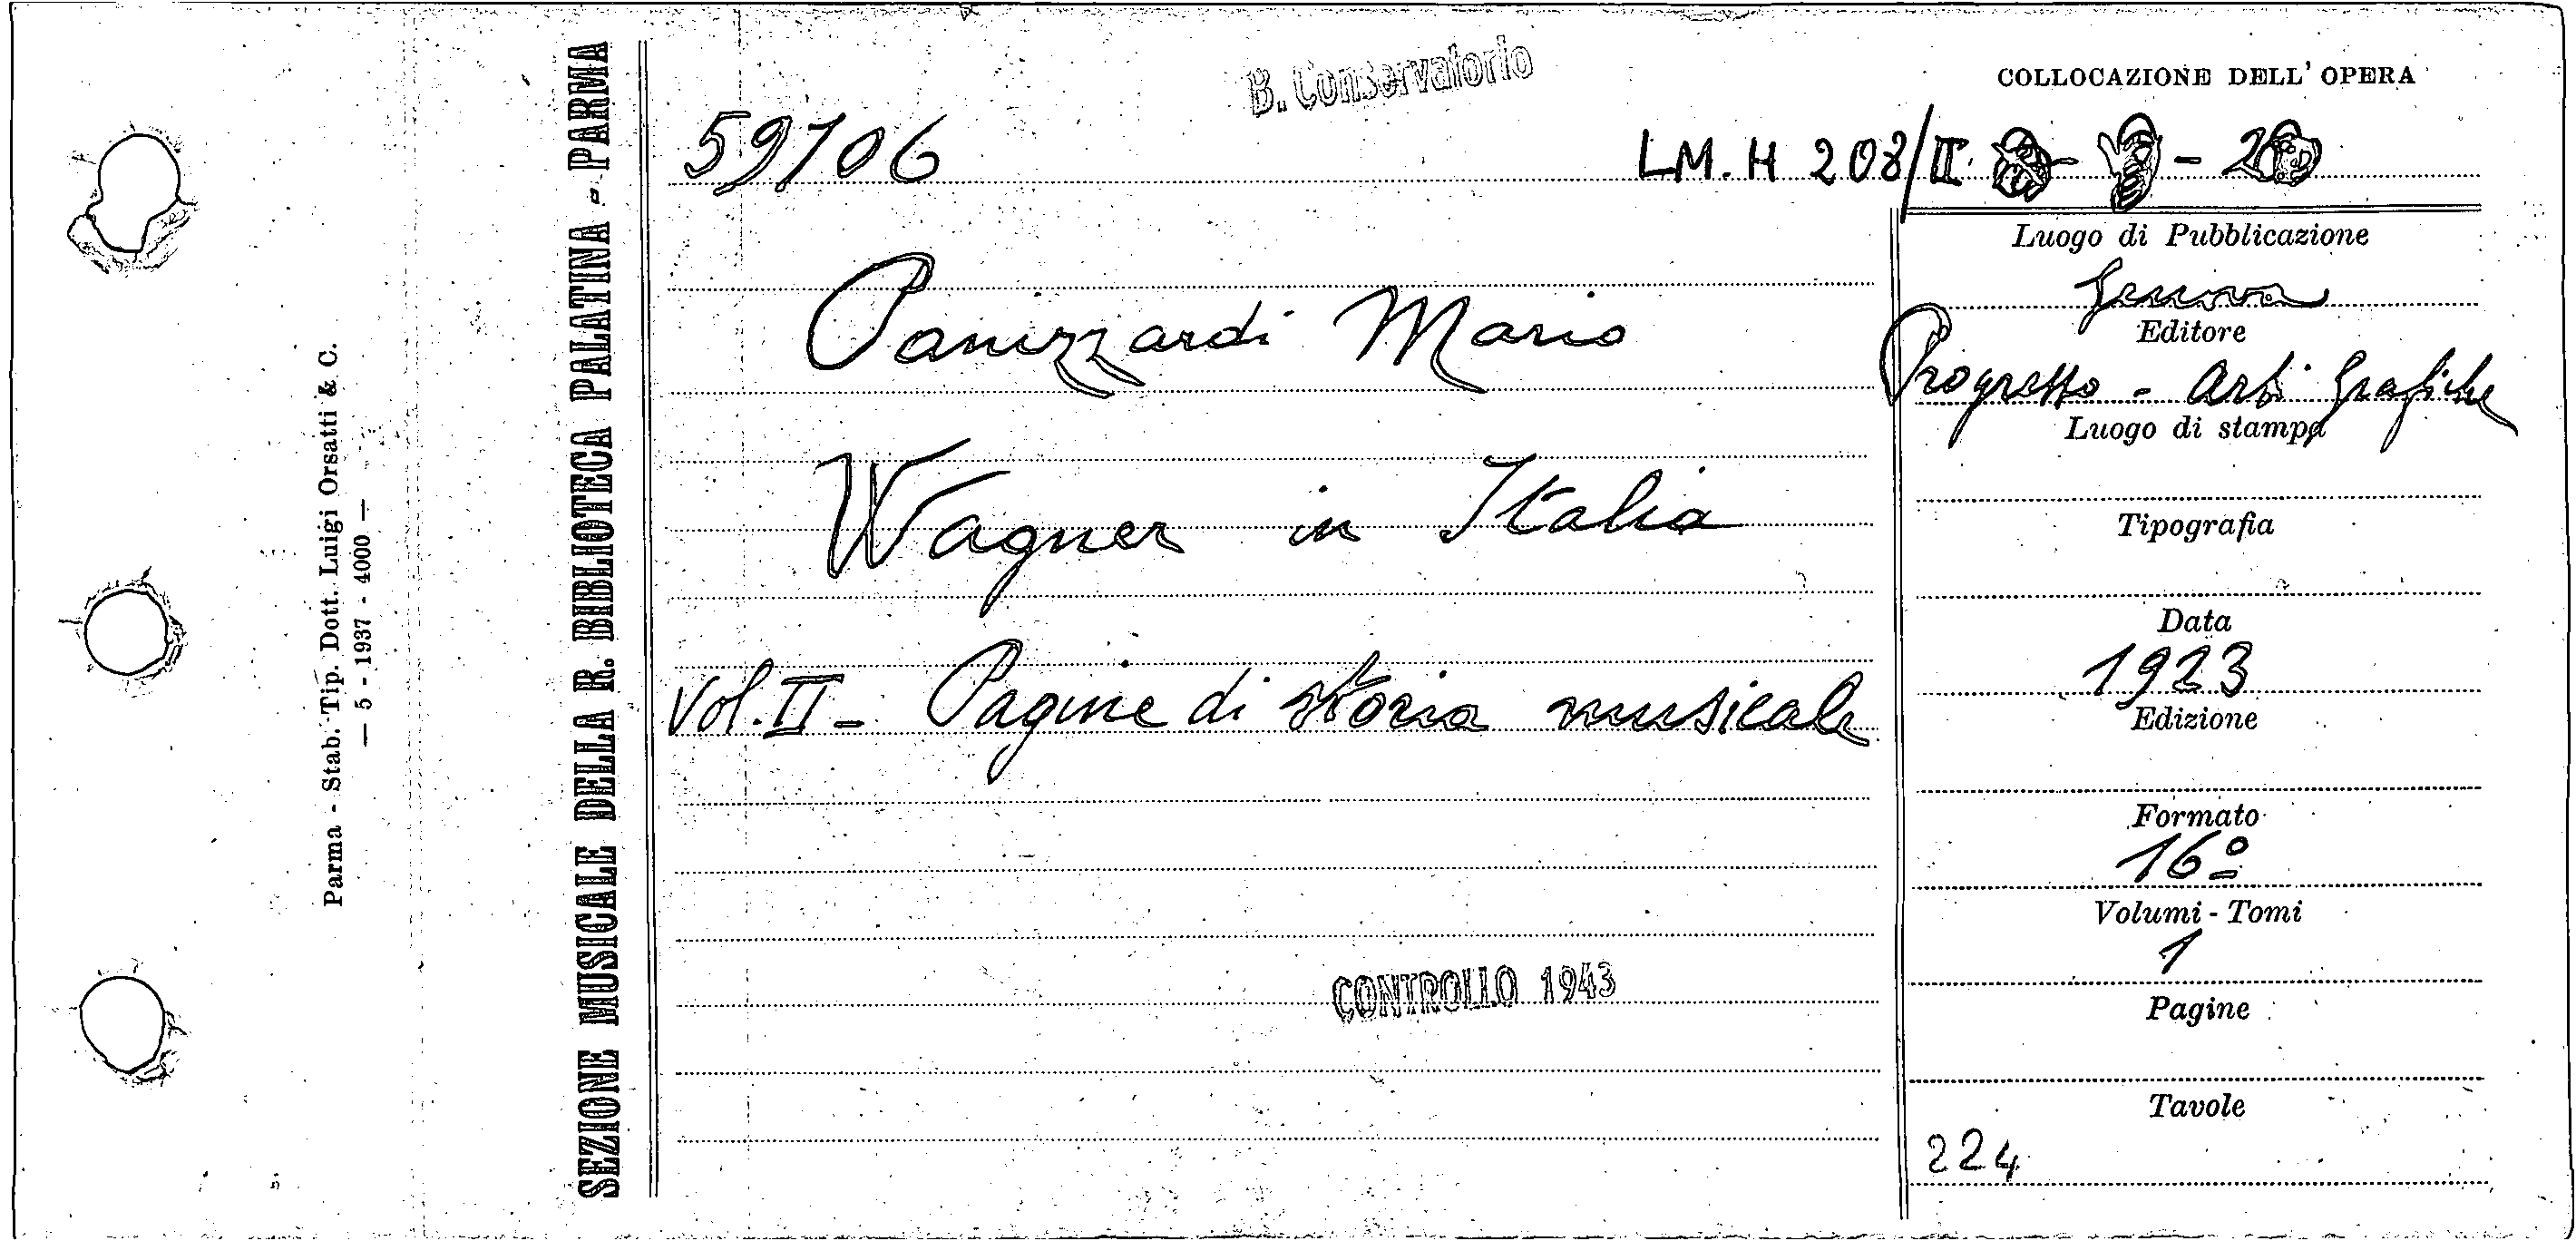 Parma - Stab. Tip. Dott. Luigi Orsatti & C.
— 5 - 1937 - 4000 —
SEZIONE MUSICALE DELLA R. BIBLIOTECA PALATINA - PARMA
B. Conservatorio
59706
COLLOCAZIONE DELL'OPERA
LM. H 208/II
Panizzardi Mario
Wagner in Italia
Vol. II - Pagine di storia musicale
CONTROLLO 1943
Luogo di Pubblicazione
Genova
Editore
Progresso - Arti Grafiche
Luogo di stampa
Tipografia
Data
1923
Edizione
Formato
16º
Volumi - Tomi
1
Pagine
Tavole
224